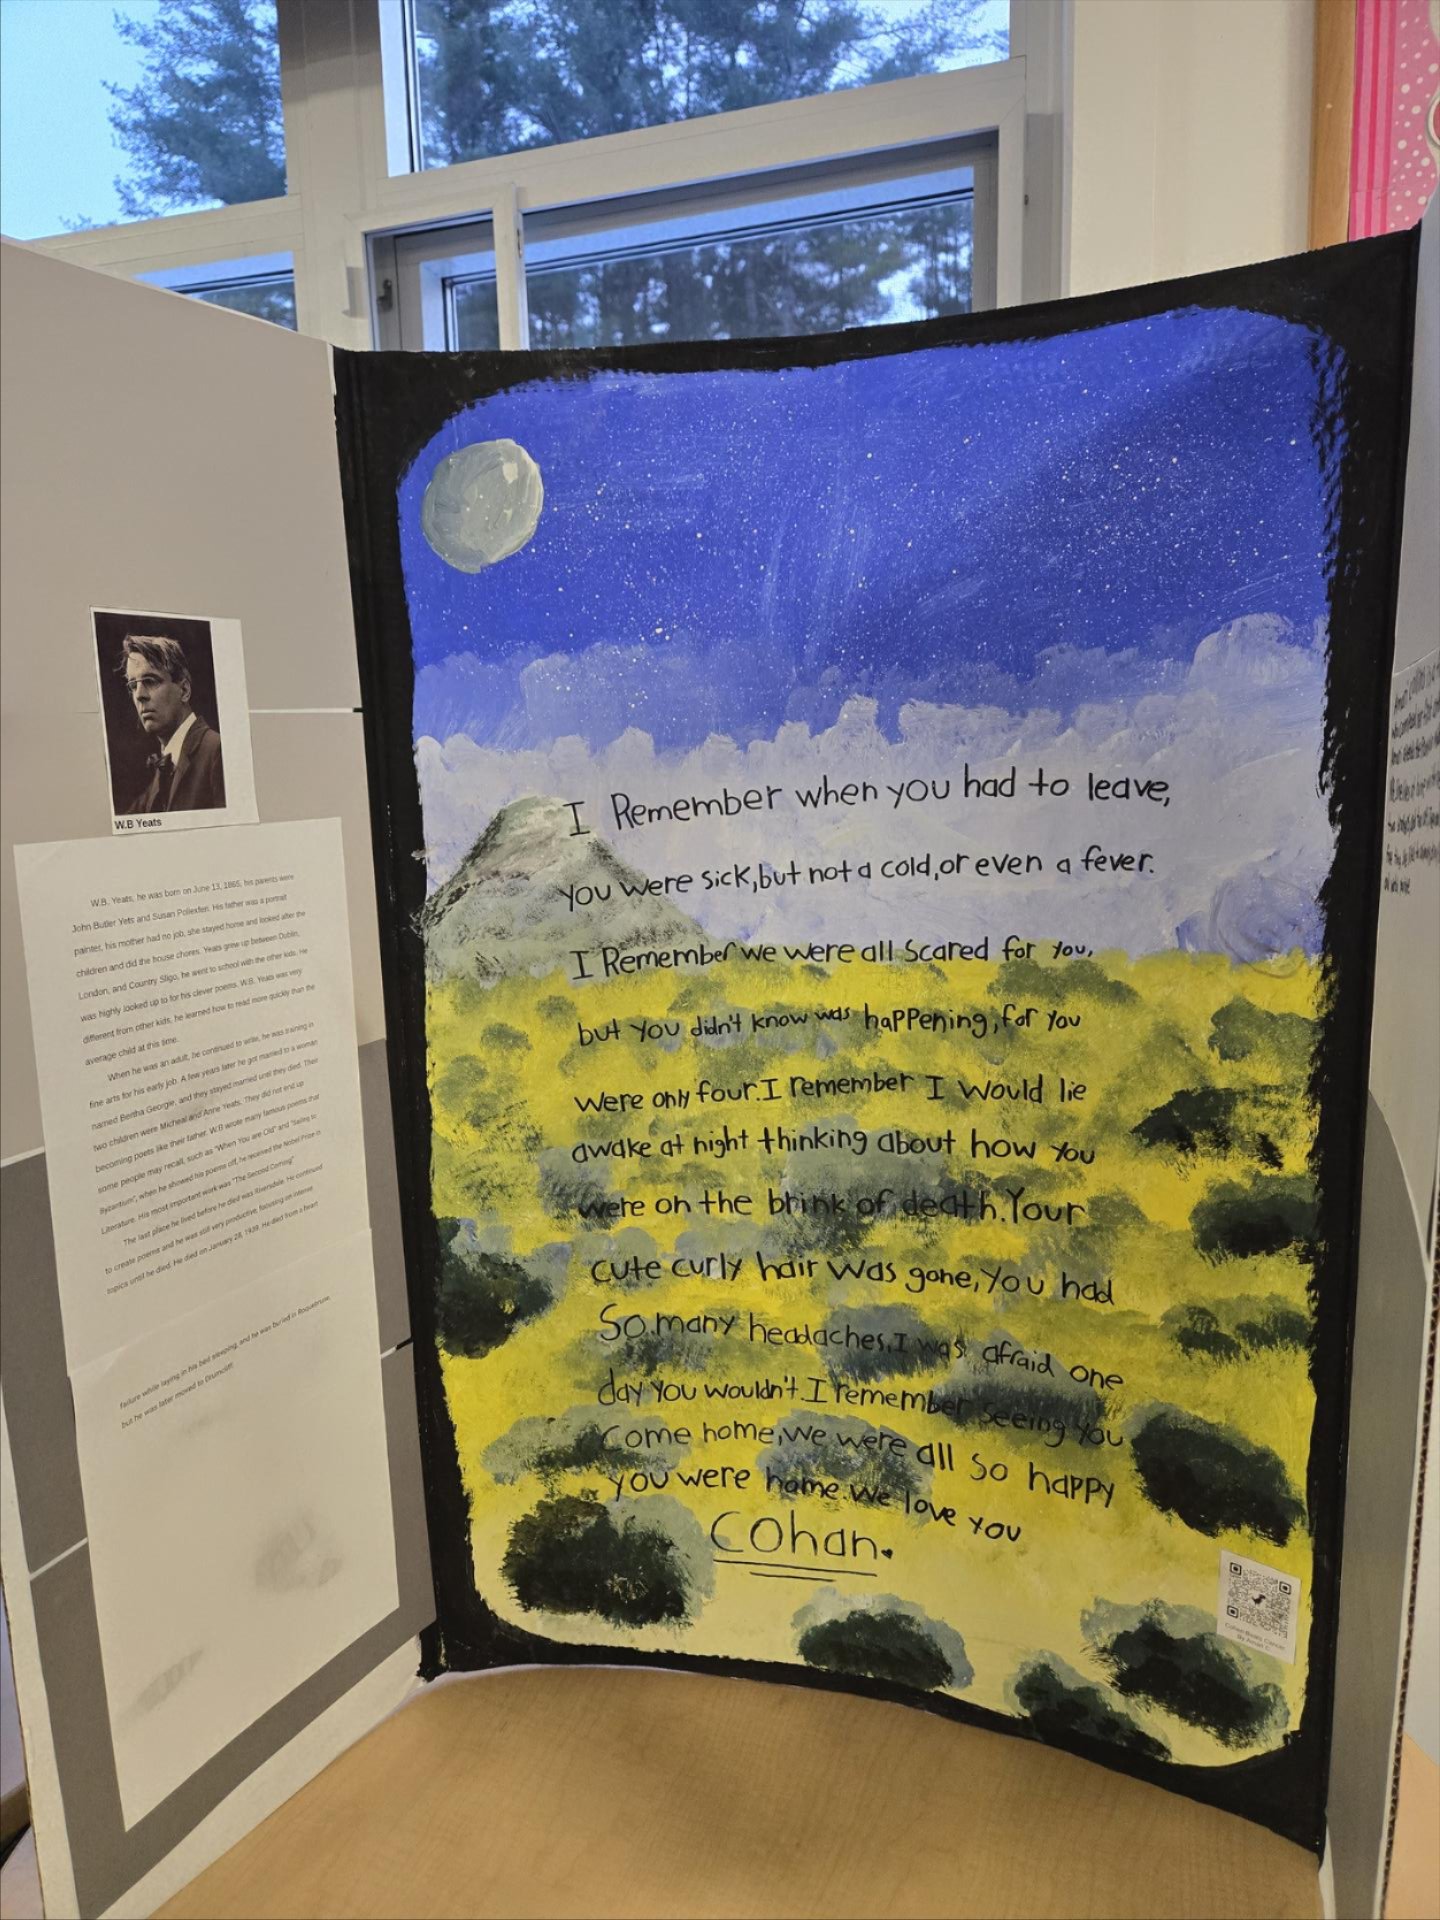 W.B Yeats
W.B. Yeats, he was born on June 13, 1865, his parents were
John Butler Yets and Susan Pollexfen. His father was a portrait
painter, his mother had no job, she stayed home and looked after the
children and did the house chores. Yeats grew up between Dublin,
London, and Country Sligo, he went to school with the other kids. He
was highly looked up to for his clever poems. W.B. Yeats was very
different from other kids, he learned how to read more quickly than the
average child at this time.
When he was an adult, he continued to write, he was training in
fine arts for his early job. A few years later he got married to a woman
named Bertha Georgie, and they stayed married until they died. Their
two children were Micheal and Anne Yeats. They did not end up
becoming poets like their father. W.B wrote many famous poems that
some people may recall, such as "When You are Old" and "Sailing to
Byzantium", when he showed his poems off, he received the Nobel Prize in
Literature. His most important work was "The Second Coming"
The last place he lived before he died was Riversdale. He continued
to create poems and he was still very productive, focusing on intense
topics until he died. He died on January 28, 1939. He died from a heart
failure while laying in his bed sleeping, and he was buried in Roquebrune,
but he was later moved to Drumcliff!
I Remember when you had to leave,
you were sick, but not a cold, or even a fever.
I Remember we were all Scared for you,
but you didn't know was happening, for you
were only four. I remember I would lie
awake at night thinking about how you
were on the brink of death. Your
cute curly hair was gone, you had
So many headaches, I was afraid one
day you wouldn't. I remember seeing you
Come home, we were all so happy
you were home. We love you
Cohan.
Cohan Beats Cancer
By Amari C